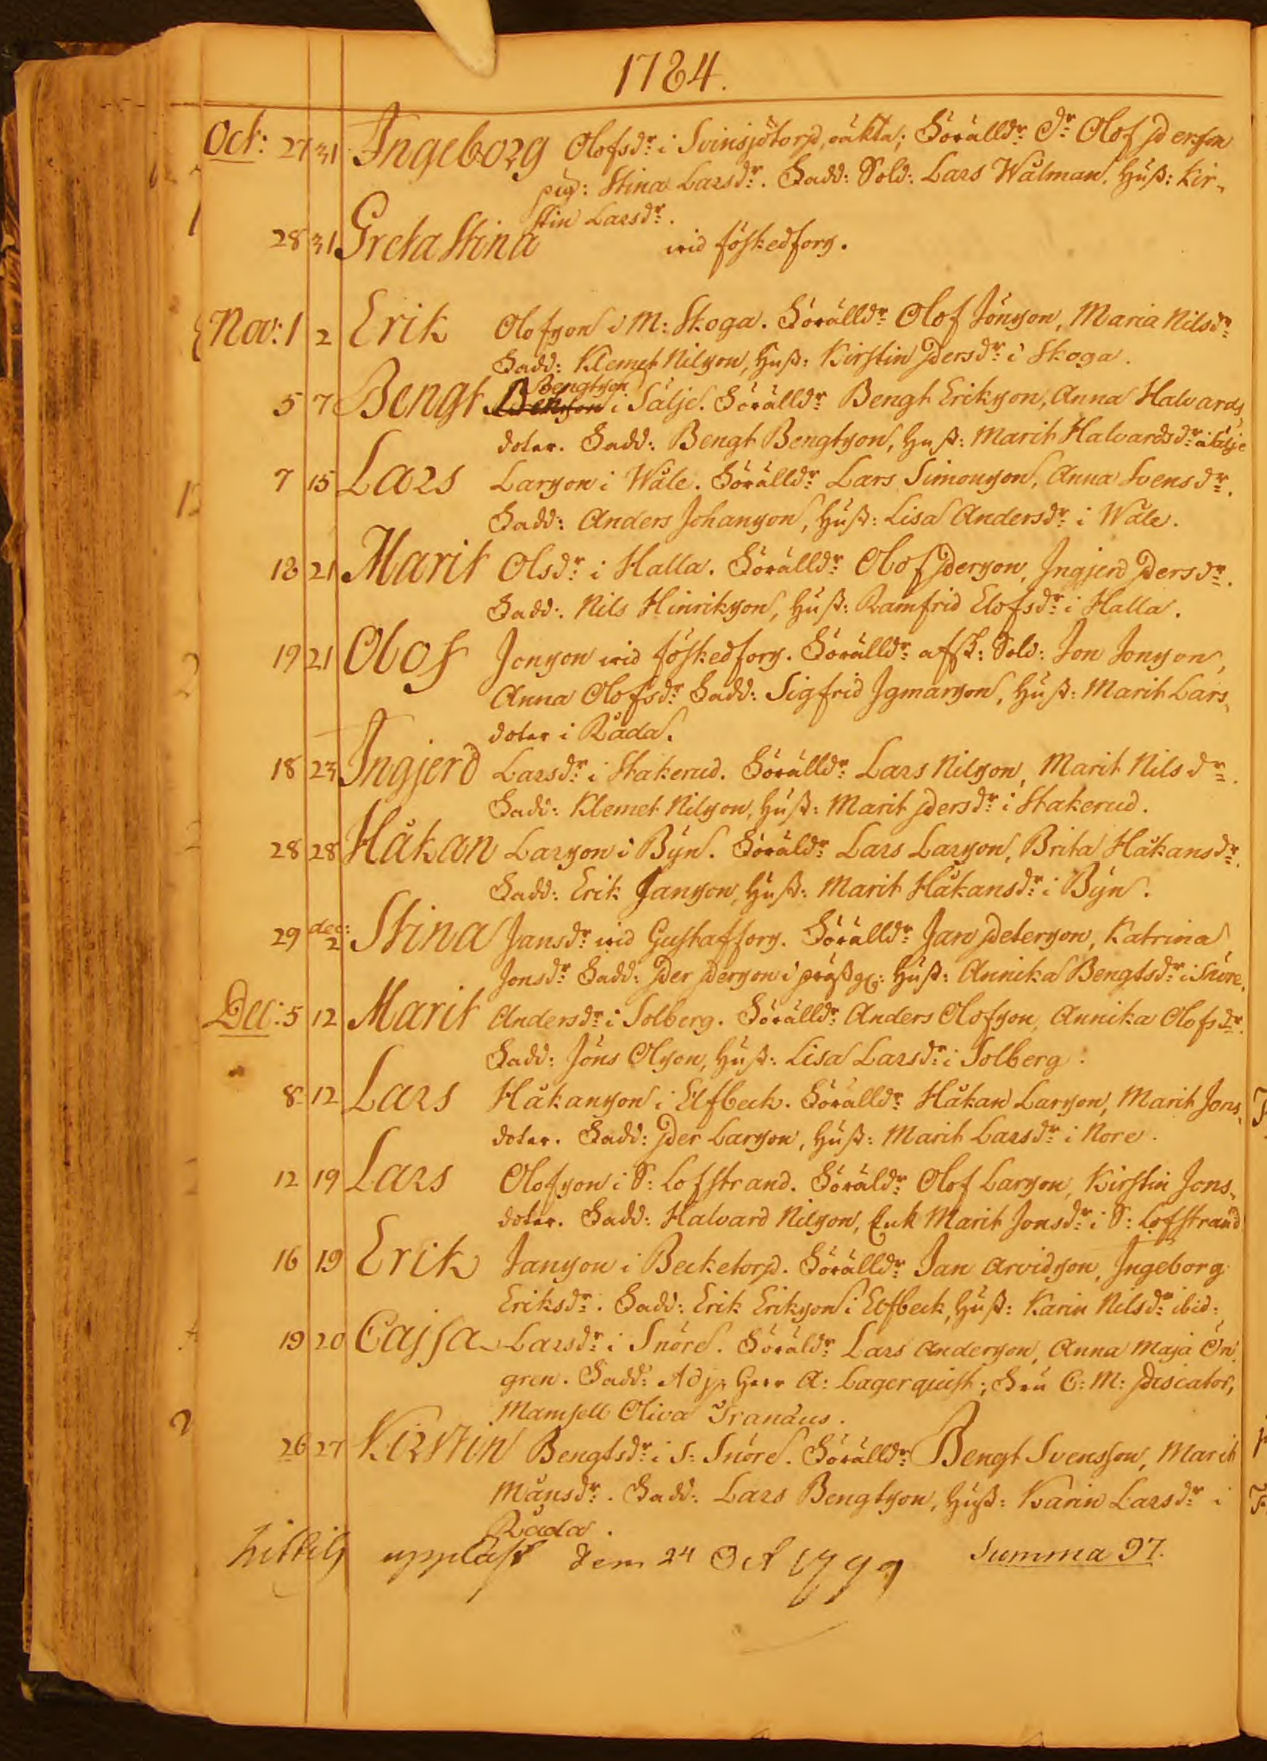 1784.
Oct: 27 31 Ingeborg Olofsdr: i Svinsjötorp, oäkta; Föräldr: Dr Olof Person
pig: Stina Larsdr: Fadd: Sold: Lars Wålman, Hust: Kir-
stin Larsdr:
28 31 Greta Stina wid föskedfors.
Nov: 1 2 Erik Olofson i M: Skoga. Föräldr: Olof Jönson, Maria Nilsdr:
Fadd: Klemet Nilson, Hust: Kirstin Persdr: i Skoga.
Bengtson
5 7 Bengt i Sälje. Föräldr: Bengt Erikson, Anna Halvards
doter. Fadd: Bengt Bengtson, Hust: Marit Halvardsdr: i Sälje
7 15 Lars Larson i Wåle. Föräldr: Lars Simonson, Anna Svensdr:
Fadd: Anders Johanson, Hust: Lisa Andersdr: i Wåle.
18 21 Marit Olsdr: i Halla. Föräldr: Olof Person, Ingjerd Persdr:
Fadd: Nils Hinrikson, Hust: Ramfrid Elofsdr: i Halla.
19 21 Olof Jonson wid föskedfors. Föräldr: afsk: Sold: Jon Jonson,
Anna Olofsdr: Fadd: Sigfrid Igmarson, Hust: Marit Lars-
doter i Råda.
18 23 Ingjerd Larsdr: i Stakerud. Föräldr: Lars Nilson, Marit Nilsdr:
Fadd: Klemet Nilson, Hust: Marit Persdr: i Stakerud.
28 28 Håkan Larson i Byn. Föräldr: Lars Larson, Brita Håkansdr:
Fadd: Erik Janson, Hust: Marit Håkansdr: i Byn.
29 dec: 2 Stina Jansdr: wid Gustafsfors. Föräldr: Jan Peterson, Katrina
Jonsdr: Fadd: Per Person i Hust: Annika Bengtsdr: i Snöre.
Dec: 5 12 Marit Andersdr: i Solberg. Föräldr: Anders Olofson, Annika Olofsdr:
Fadd: Jöns Olson, Hust: Lisa Larsdr: i Solberg.
8 12 Lars Håkanson i Elfbeck. Föräldr: Håkan Larson, Marit Jons-
doter. Fadd: Per Larson, Hust: Marit Larsdr: i Nore.
12 19 Lars Olofson i S: Lofstrand. Föräldr: Olof Larson, Kirstin Jons-
doter. Fadd: Halvard Nilson, Enk Marit Jonsdr: i S: Lofstrand
16 19 Erik Janson i Becketorp. Föräldr: Jan Arvidson, Ingeborg
Eriksdr: Fadd: Erik Erikson i Elfbeck, Hust: Karin Nilsdr: ibid:
19 20 Cajsa Larsdr: i Snöre. Föräldr: Lars Anderson, Anna Maja Örn
gren. Fadd: Adj: Herr A: Lagerquist; Fru C: M: Piscator,
Mamsell Oliva Tranæus.
26 27 Kirstin Bengtsdr: i S: Snöre. Föräldr: Bengt Svensson, Marit
Månsdr: Fadd: Lars Bengtson, Hust: Karin Larsdr: i
Råda.
hittils uppläst dem 24 Oct 1799 Summa 97.